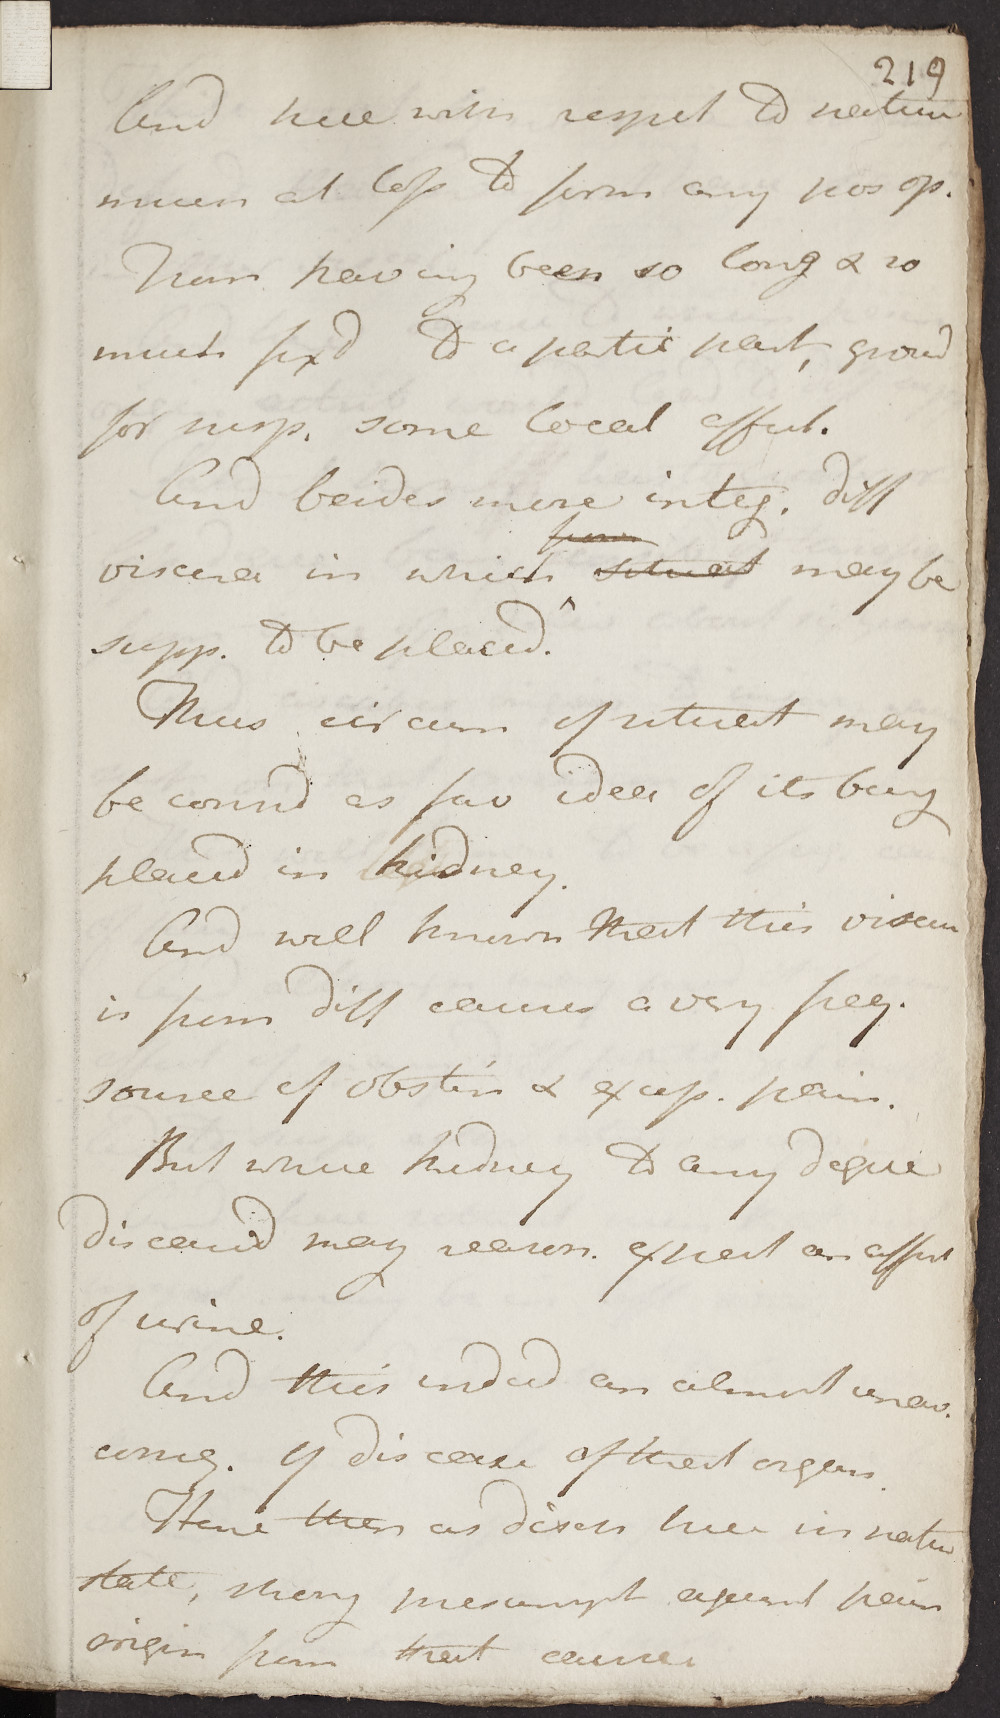 219
And here with respect to nature
much at loss to form any pos op.
From having been so long & so
much fixd to a particr part, ground
for susp. some local affect.
And besides more integ. diff
from
viscera in which situat may be
supp. to be placed.^
Thus circum of situat may
be consid as fav idea of its being
placed in kidney.
And well known that this viscus
is from diff causes a very freq.
source of obstin & excess. pain.
But where kidney to any degree
diseased may reason. expect an affect
of urine.
And this indeed an almost unav.
conseq. of disease of that organ.
Hence then as disch here in natur
state, strong presumpt against pain
origin from that cause